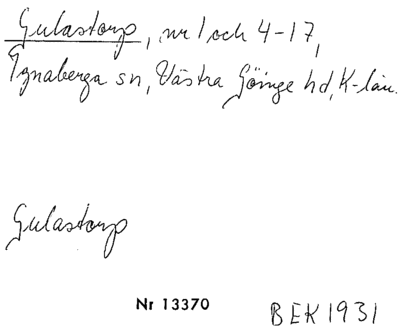 Gulastorp, nr 1 och 4-17,
Ignaberga sn, Västra Göinge hd, K-län.
Gulastorp
Nr 13370
BEK 1931